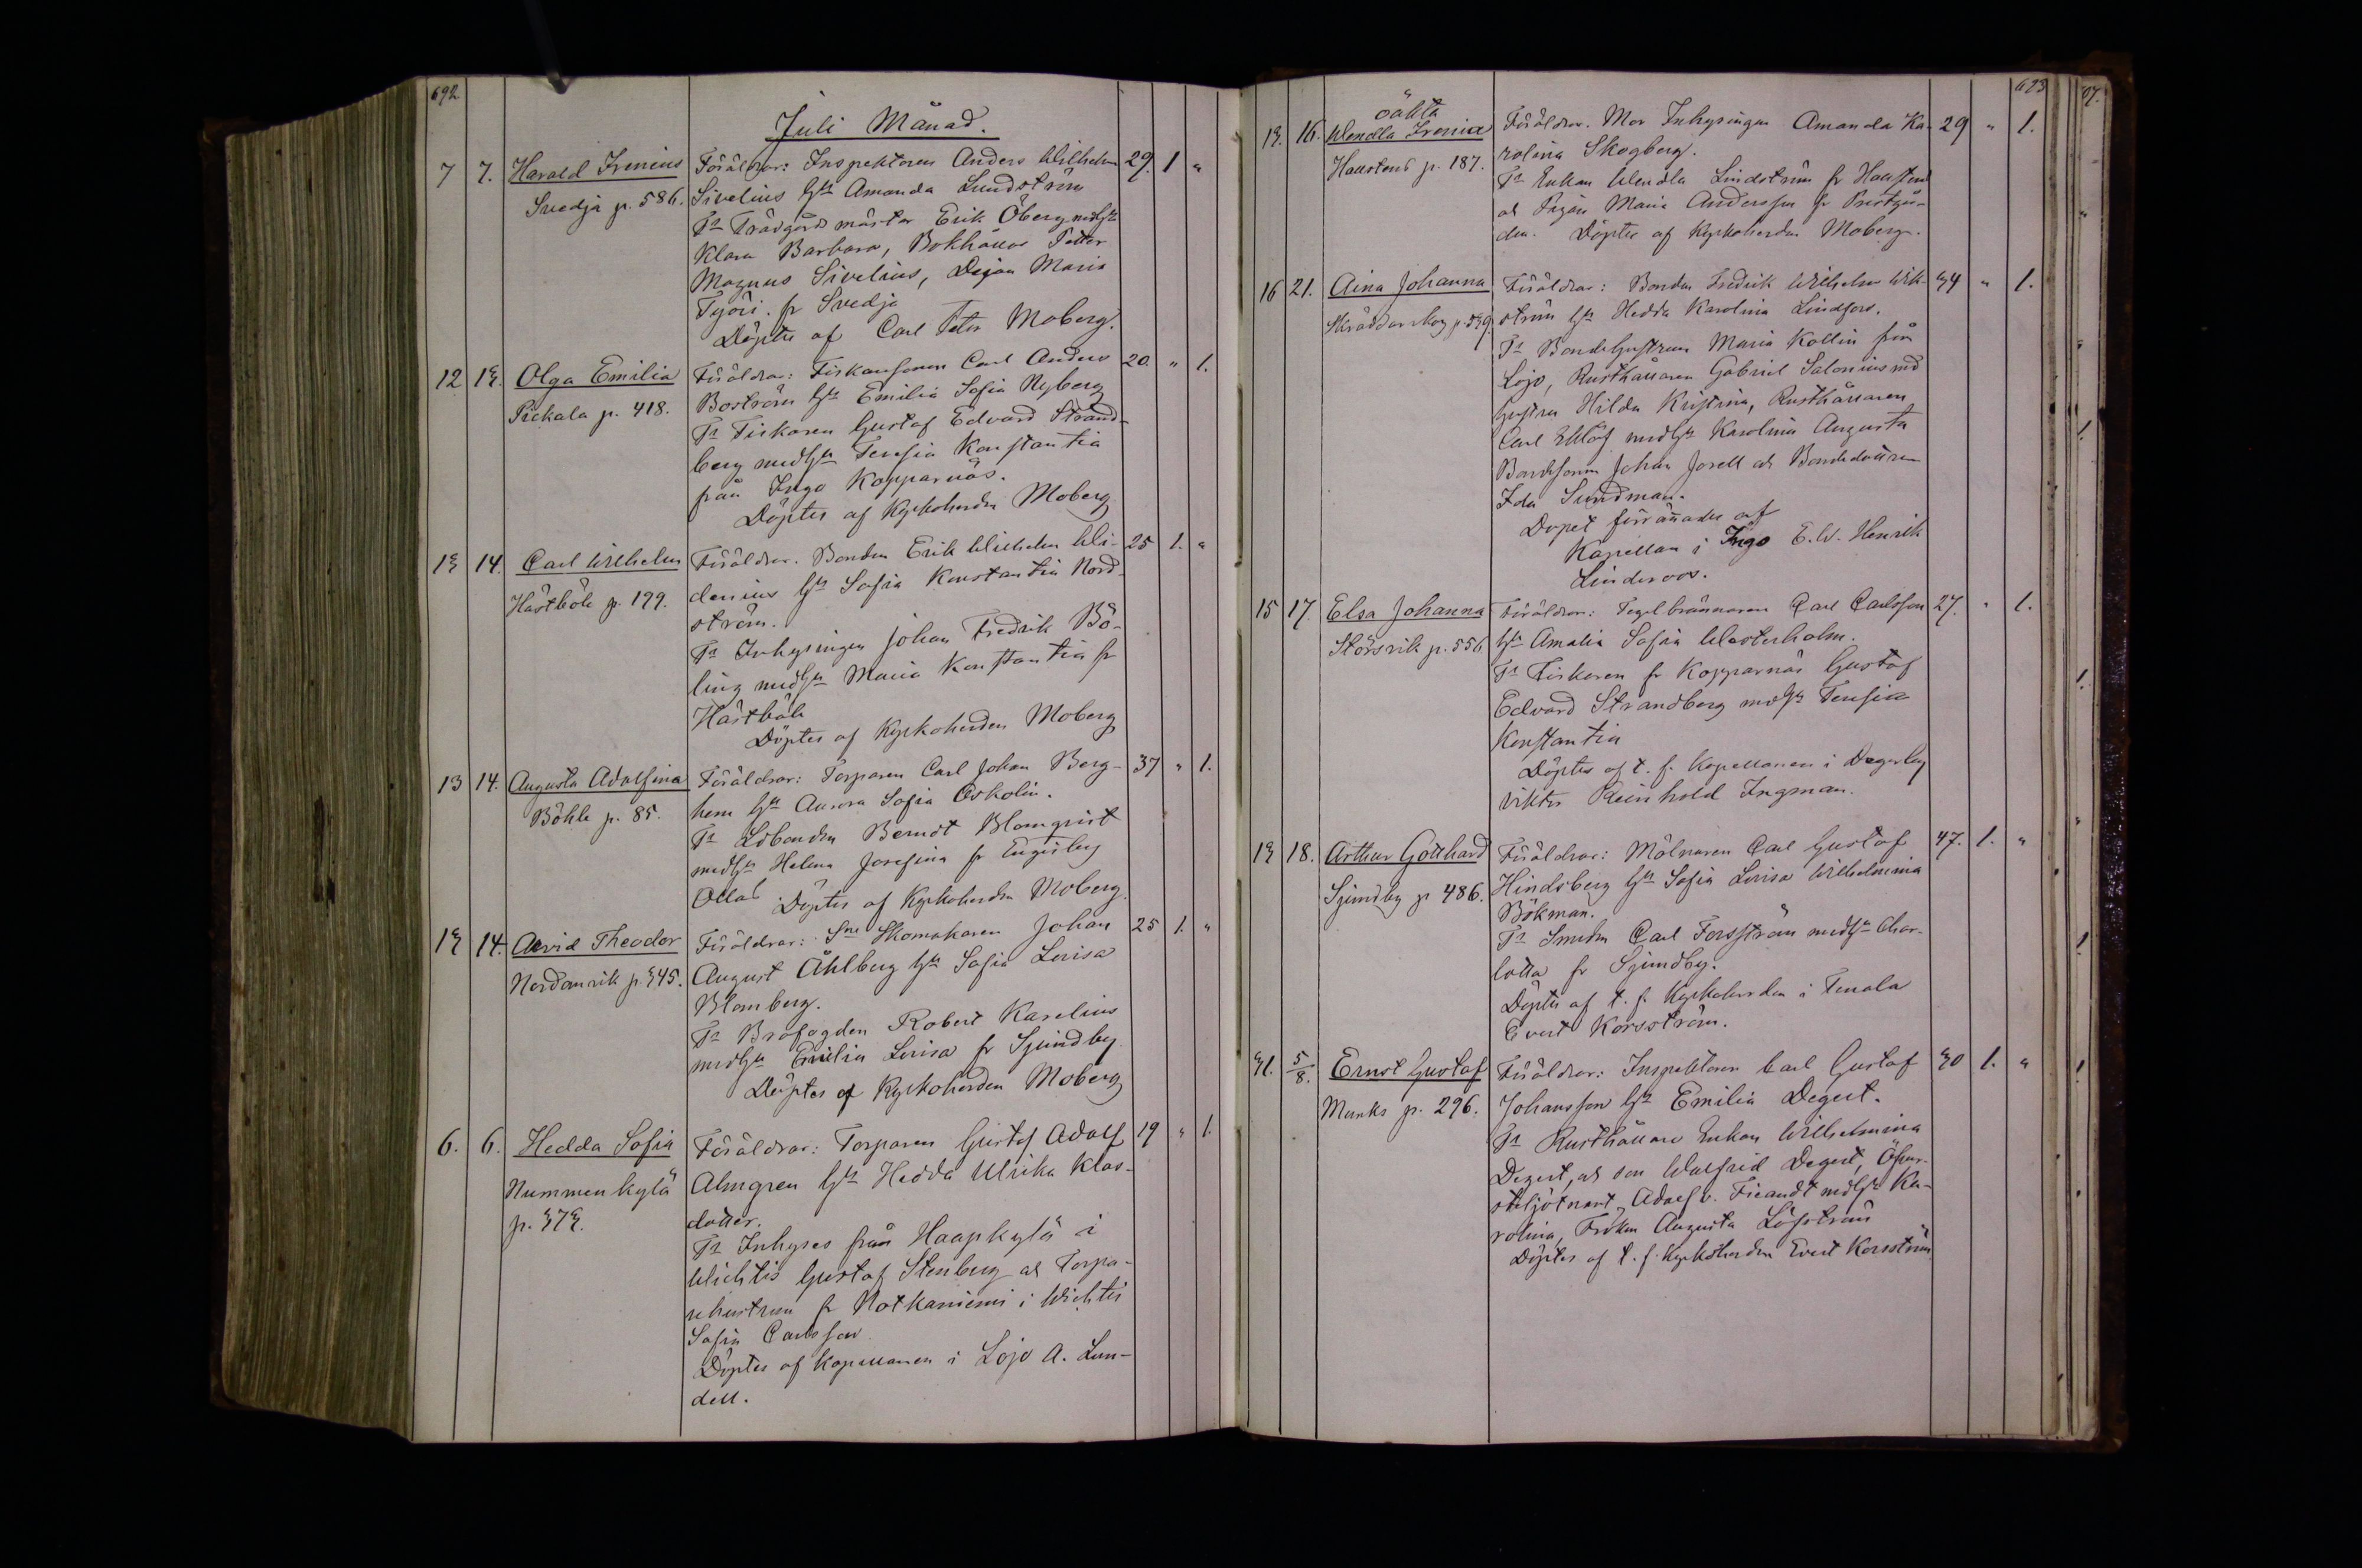 692
Juli Månad.
7 7. Harald Irenius Föräldrar: Inspektoren Anders Wilhelm 29. 1 "
Svedja p. 586. Sivelius hst Amanda Lundström
Fr Trädgårdsmästar Erik Öberg medhst
Klara Barbara, Bokhållar Petter
Magnus Sivelius, Dejan Maria
Työri. fr Svedja
Döptes af Carl Petter Moberg.
12 13. Olga Emilia Föräldrar: Fiskaresonen Carl Anders 20. " 1.
Pickala p. 418. Boström hst Emilia Sofia Nyberg
Fr Fiskaren Gustaf Edvard Strand-
berg medhst Teresia Konstantia
från Ingo Kopparnäs.
Döptes af Kyrkoherden Moberg
13 14. Carl Wilhelm Föräldrar. Bonden Erik Wilhelm Wi- 25 1. "
Hästböle p. 199. denius hst Sofia Konstantia Nord-
ström.
Fr Inhysingen Johan Fredrik Bö-
ling medhst Maria Konstantia fr
Hästböle
Döptes af Kyrkoherden Moberg
13 14. Augusta Adolfina Föräldrar: Torparen Carl Johan Berg- 37 " 1.
Böhle p. 85. hem hst Aurora Sofia Eskolin.
Fr Ldbonden Berndt Blomqvist
medhst Helena Josefina fr Engisby
Ollas Döptes af Kyrkoherden Moberg.
13 14. Arvid Theodor Föräldrar: Sne Skomakaren Johan 25 1. "
Nordanvik p. 345. August Åhlberg hst Sofia Lovisa
Blomberg.
Fr Brofogden Robert Karelius
medhst Emilia Lovisa fr Sjundby
Döptes af Kyrkoherden Moberg
6. 6. Hedda Sofia Föräldrar: Torparen Gustaf Adolf 19 " 1.
Nummenkylä Almgren hst Hedda Ulrika Klas-
p. 373. dotter.
Fr Inhyses från Haapkylä i
Wichtis Gustaf Stenberg och Torpa-
rehustrun fr Notkaniemi i Wichtis
Sofia Carlsson
Döptes af Kapellanen i Lojo A. Lun-
dell.
693
oäkta
13. 16. Wendla Irenia Föräldrar. Mor Inhysingen Amanda Ka- 29 " 1.
Haustens p. 187. rolina Skogberg.
Fr Enkan Wendla Lindström fr Haustens
och Pigan Maria Andersson fr Prestgår-
den. Döptes af Kyrkoherden Moberg.
16 21. Aina Johanna Föräldrar: Bonden Fredrik Wilhelm Wik- 34 " 1.
Skräddarskog p. 539. ström hst Hedda Karolina Lindfors.
Fr Bondehustrun Maria Kollin från
Lojo, Rusthållaren Gabriel Salonius med
hustru Hilda Kristina, Rusthållaren
Carl Eklöf medhst Karolina Augusta
Bondesonen Johan Jorell och Bondedottren
Ida Sundman.
Dopet förrättades af
Kapellan i Ingo E. W. Henrik
Linderoos.
15 17. Elsa Johanna Föräldrar: Tegelbrännaren Carl Carlsson 27. " 1.
Störsvik p. 556 hst Amalia Sofia Westerholm.
Fr Fiskaren fr Kopparnäs Gustaf
Edvard Strandberg medhst Teresia
Konstantia
Döptes af t. f. Kapellanen i Degerby
Viktor Reinhold Ingman.
13 18. Arthur Gotthard Föräldrar: Mölnaren Carl Gustaf 47. 1. "
Sjundby p 486. Hindsberg hst Sofia Lovisa Wilhelmina
Bökman.
Fr Smeden Carl Forsström medhst Char-
lotta fr Sjundby.
Döptes af t. f. Kyrkoherden i Tenala
Evert Korsström.
31. 5/8. Ernst Gustaf Föräldrar: Inspektoren Carl Gustaf 30 1. "
Munks p. 296. Johansson hst Emilia Degert.
Fr Rusthållare Enkan Wilhelmina
Degert, och son Walfrid Degert, Öfver-
steljötnant Adolf v. Fieandt medhst Ka-
rolina, Fröken Augusta Löfström
Döptes af t. f. Kyrkoherden Evert Korsström